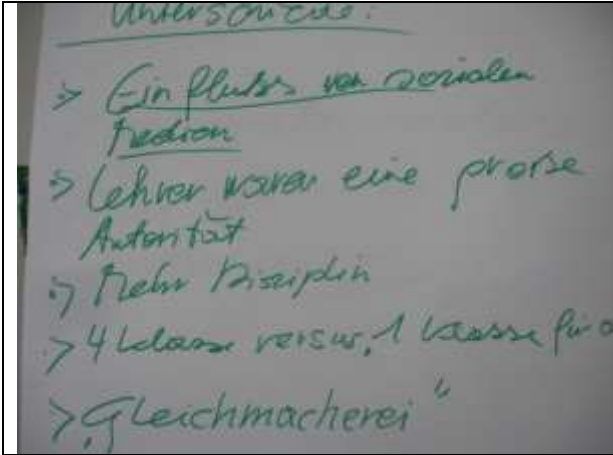 Unterschiede:
> Einfluss von sozialen
Medien
> Lehrer waren eine große
Autorität
> Mehr Disziplin
> 4 Klassen versus, 1 Klasse für a
> „Gleichmacherei“